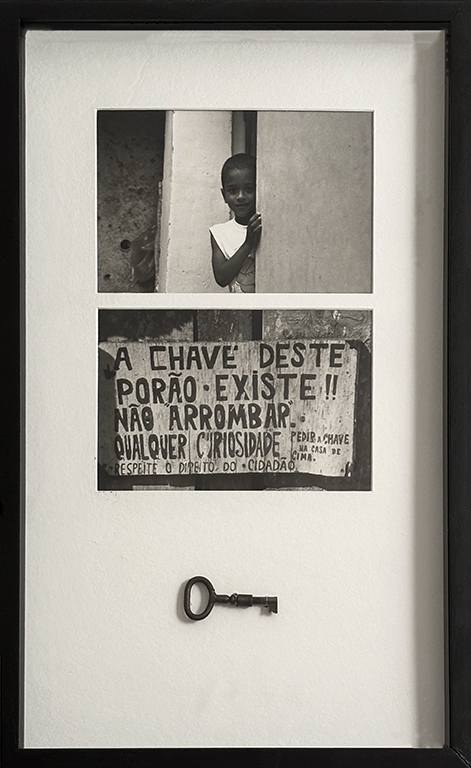 A CHAVE DESTE
PORÃO • EXISTE!!
NÃO "ARROMBAR".
QUALQUER CURIOSIDADE PEDIR A CHAVE
NA CASA DE
CIMA.
RESPEITE O DIREITO. DO • CIDADÃO